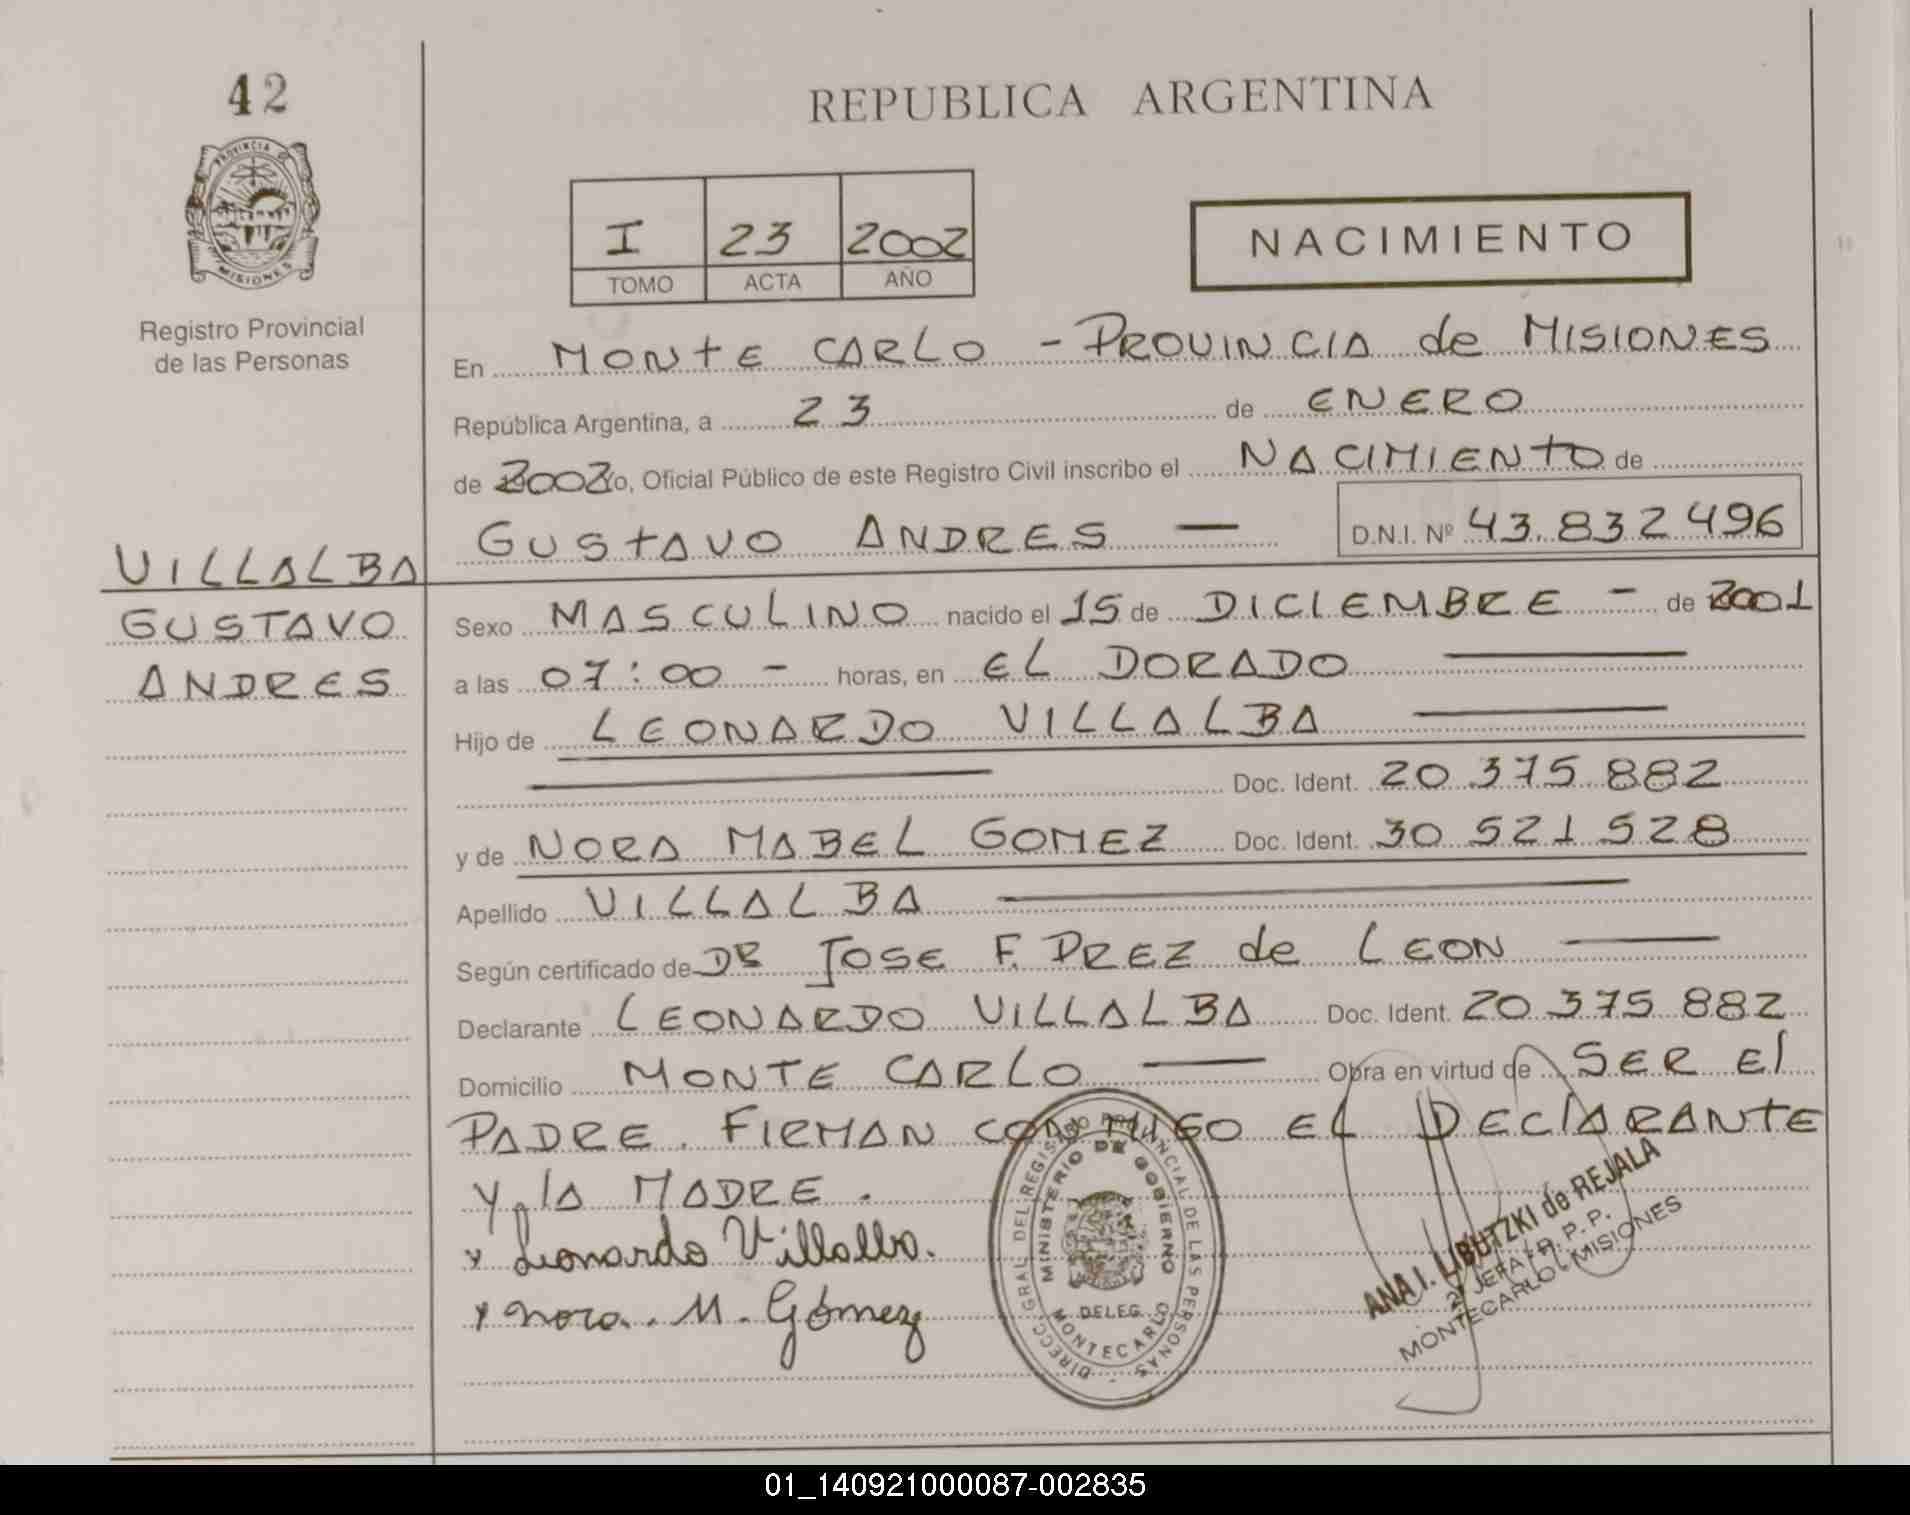 42
REPUBLICA ARGENTINA
PROVINCIA DE
MISIONES
Registro Provincial
de las Personas
I 23 2002
TOMO ACTA AÑO
NACIMIENTO
En MONTE CARLO - PROVINCIA de MISIONES
República Argentina, a 23 de ENERO
de 2002 yo, Oficial Público de este Registro Civil inscribo el NACIMIENTO de
GUSTAVO ANDRES — D.N.I. Nº 43.832496
VILLALBA
GUSTAVO
ANDRES
Sexo MASCULINO nacido el 15 de DICIEMBRE - de 2001
a las 07:00 - horas, en EL DORADO —
Hijo de LEONARDO VILLALBA —
— Doc. Ident. 20 375 882
y de NORA MABEL GOMEZ Doc. Ident. 30 521 528
Apellido VILLALBA —
Según certificado de DR JOSE F. PREZ de LEON —
Declarante LEONARDO VILLALBA Doc. Ident. 20 375 882
Domicilio MONTE CARLO — Obra en virtud de SER El
PADRE. FIRMAN CONMIGO EL DEClARANTE
y lA MADRE.
x Leonardo Villalba.
x Nora. M. Gómez
DIRECC. GRAL. DEL REGISTRO PROVINCIAL DE LAS PERSONAS -
MINISTERIO DE GOBIERNO
DELEG.
MONTECARLO
ANA I. LIBUTZKI de REJALA
JEFA R. P. P.
MONTECARLO - MISIONES
01_140921000087-002835